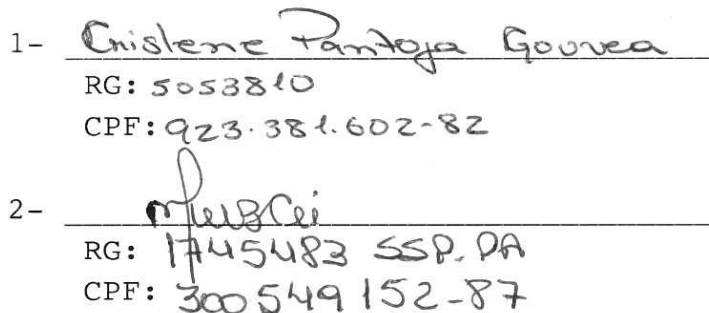 1- Cristene Pantoja Gouvea
RG: 5053810
CPF: 923.381.602-82
2-
RG: 1745483 SSP. PA
CPF: 300549152-87